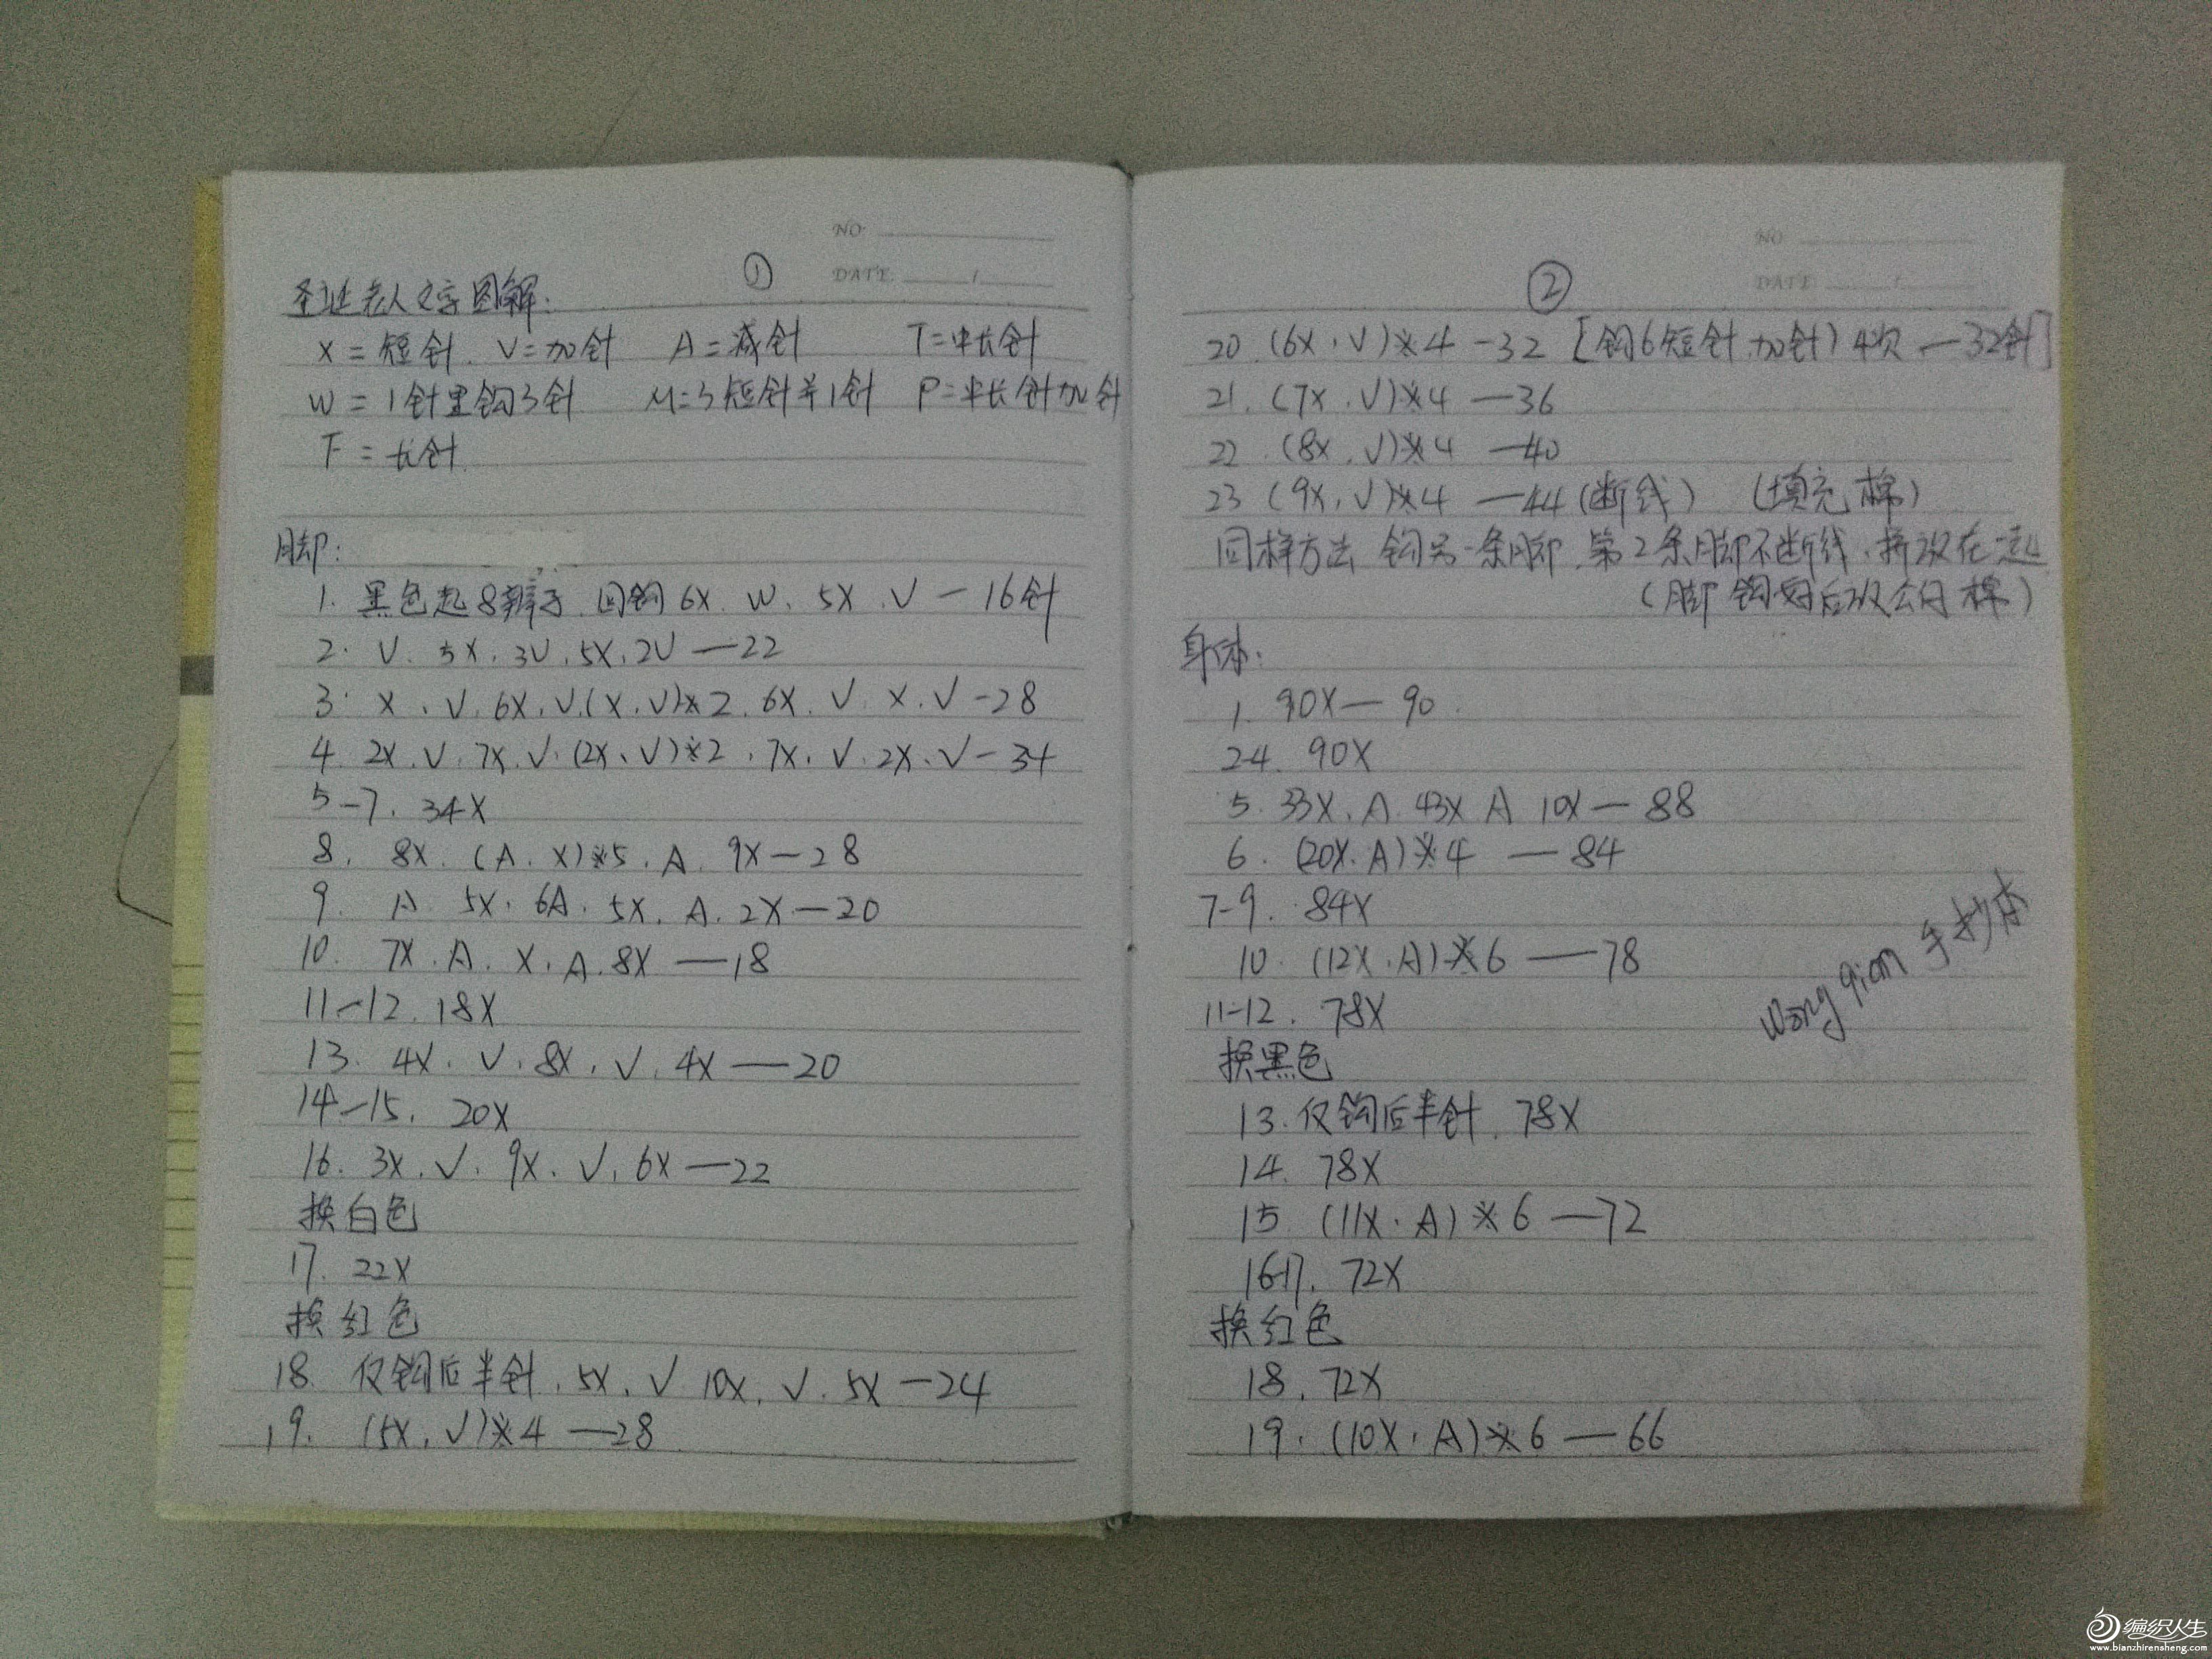 NO.
①
DATE. /
圣诞老人文字图解:
X=短针. V=加针 A=减针 T=中长针
W=1针里钩3针 M=3短针并1针 P=中长针加针
F=长针
脚:
1. 黑色起8辫子. 回钩6X. W. 5X. V — 16针
2. V. 5X. 3V. 5X. 2V — 22
3. X. V. 6X. V. (X. V)※2. 6X. V. X. V - 28
4. 2X. V. 7X. V. (2X. V)※2. 7X. V. 2X. V - 34
5-7. 34X
8. 8X. (A. X)※5. A. 9X — 28
9. A. 5X. 6A. 5X. A. 2X — 20
10. 7X. A. X. A. 8X — 18
11-12. 18X
13. 4X. V. 8X. V. 4X — 20
14-15. 20X
16. 3X. V. 9X. V. 6X — 22
换白色
17. 22X
换红色
18. 仅钩后半针. 5X. V 10X. V. 5X — 24
19. (5X. V)※4 — 28
NO.
②
DATE. /
20. (6X. V)※4 - 32 [钩6短针.加针) 4次 — 32针]
21. (7X. V)※4 — 36
22. (8X. V)※4 — 40
23 (9X. V)※4 — 44 (断线) (填充棉)
同样方法 钩另一条脚. 第2条脚不断线. 拼放在一起
(脚钩好后放公仔棉)
身体.
1. 90X — 90.
2-4. 90X
5. 33X. A. 43X A 10X — 88
6. (20X. A)※4 — 84
7-9. 84X
10. (12X. A)※6 — 78
11-12. 78X
换黑色
13. 仅钩后半针. 78X
14. 78X
15. (11X. A)※6 — 72
16-17. 72X
换红色
18. 72X
19. (10X. A)※6 — 66
wong qian 手抄本
编织人生
www.bianzhirensheng.com